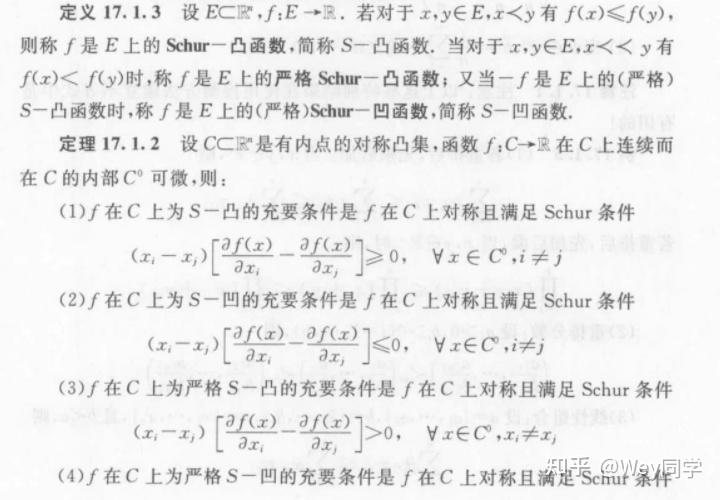 定义 17.1.3 设 E⊂ℝⁿ,f:E→ℝ. 若对于 x,y∈E,x≺y 有 f(x)≤f(y),
则称 f 是 E 上的 Schur—凸函数,简称 S—凸函数. 当对于 x,y∈E,x≺≺y 有
f(x)<f(y)时,称 f 是 E 上的严格 Schur—凸函数;又当—f 是 E 上的(严格)
S—凸函数时,称 f 是 E 上的(严格)Schur—凹函数,简称 S—凹函数.
定理 17.1.2 设 C⊂ℝⁿ是有内点的对称凸集,函数 f:C→ℝ 在 C 上连续而
在 C 的内部 C⁰ 可微,则:
(1)f 在 C 上为 S—凸的充要条件是 f 在 C 上对称且满足 Schur 条件
(xᵢ−xⱼ)[∂f(x)/∂xᵢ − ∂f(x)/∂xⱼ]≥0, ∀x∈C⁰,i≠j
(2)f 在 C 上为 S—凹的充要条件是 f 在 C 上对称且满足 Schur 条件
(xᵢ−xⱼ)[∂f(x)/∂xᵢ − ∂f(x)/∂xⱼ]≤0, ∀x∈C⁰,i≠j
(3)f 在 C 上为严格 S—凸的充要条件是 f 在 C 上对称且满足 Schur 条件
(xᵢ−xⱼ)[∂f(x)/∂xᵢ − ∂f(x)/∂xⱼ]>0, ∀x∈C⁰,xᵢ≠xⱼ
(4)f 在 C 上为严格 S—凹的充要条件是 f 在 C 上对称且满足 Schur 条件
知乎 @Wey同学